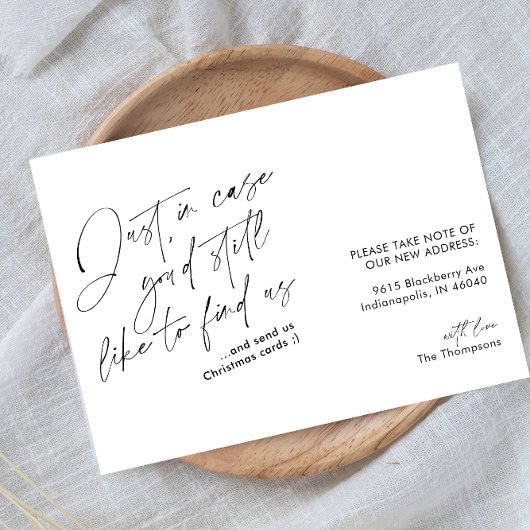 Just, in case
you'd still
like to find us
...and send us
Christmas cards ;)
PLEASE TAKE NOTE OF
OUR NEW ADDRESS:
9615 Blackberry Ave
Indianapolis, IN 46040
with love
The Thompsons